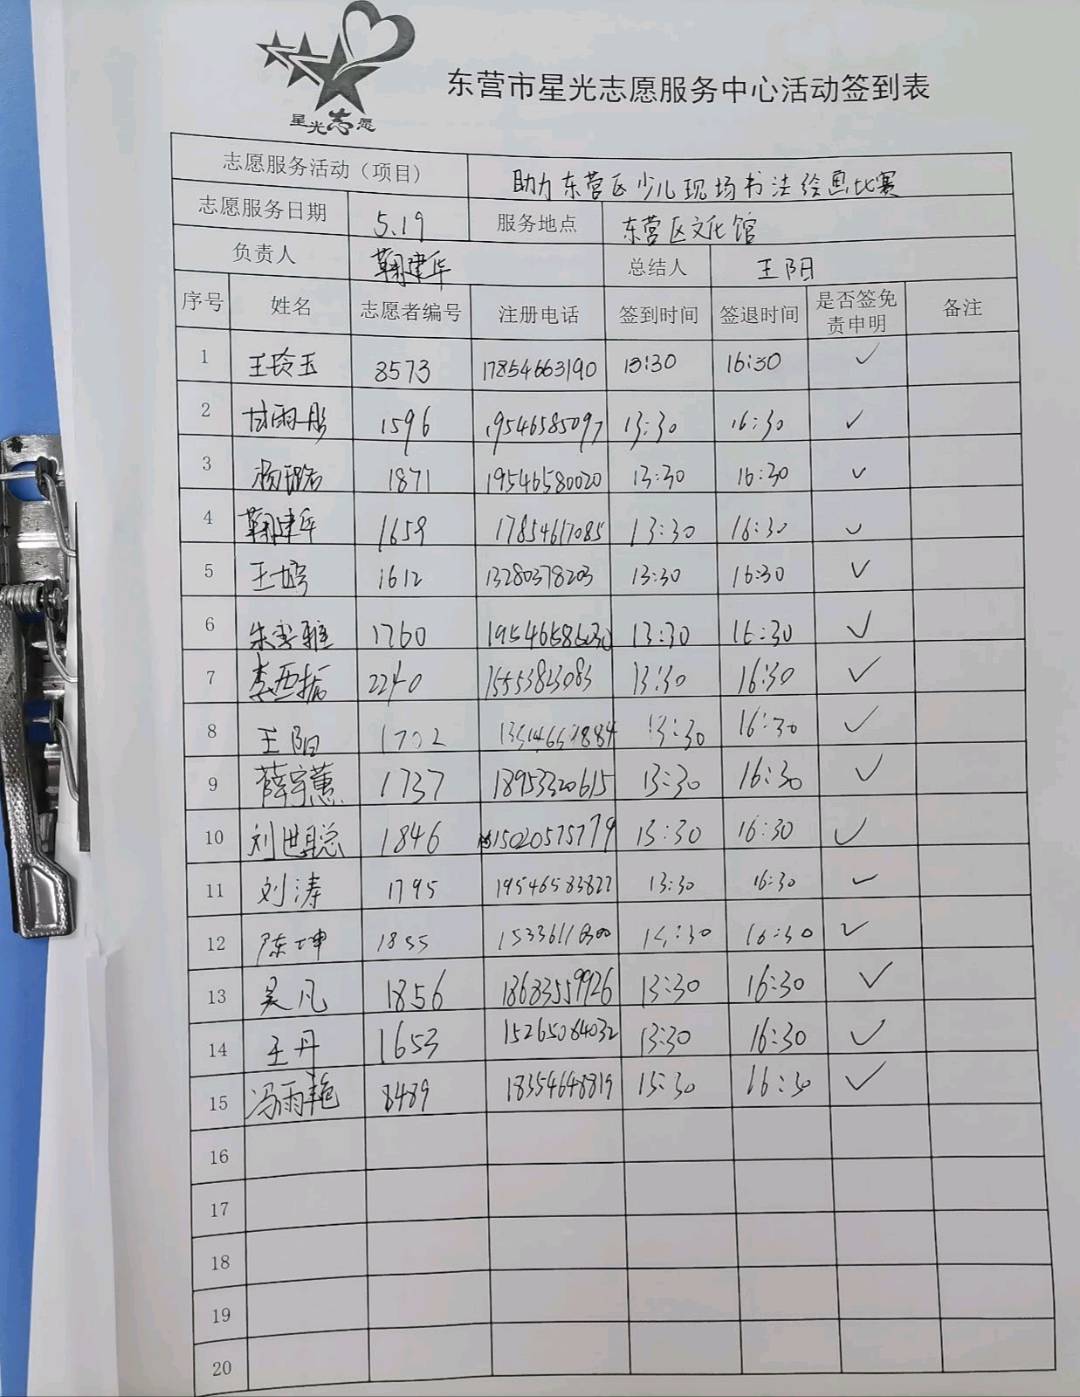 星光志愿
东营市星光志愿服务中心活动签到表
志愿服务活动（项目） 助力东营区少儿现场书法绘画比赛
志愿服务日期 5.19 服务地点 东营区文化馆
负责人 鞠建华 总结人 王阳
序号 姓名 志愿者编号 注册电话 签到时间 签退时间 是否签免责申明 备注
1 王玲玉 8573 17854663190 13:30 16:30 ✓
2 甘雨彤 1596 19546585097 13:30 16:30 ✓
3 1871 19546580020 13:30 16:30 ✓
4 鞠建华 1659 17854617085 13:30 16:30 ✓
5 1612 13280378203 13:30 16:30 ✓
6 1760 13:30 16:30 ✓
7 李西振 2240 15553823083 13:30 16:30 ✓
8 王阳 1702 13:30 16:30 ✓
9 薛宇蕙 1737 18953320615 13:30 16:30 ✓
10 刘世聪 1846 15020575779 13:30 16:30 ✓
11 刘涛 1795 19546583822 13:30 16:30 ✓
12 陈坤 1855 15336110300 16:30 ✓
13 吴凡 1856 18683559926 13:30 16:30 ✓
14 王丹 1653 15265084032 13:30 16:30 ✓
15 冯雨艳 8489 18354648819 13:30 16:30 ✓
16
17
18
19
20